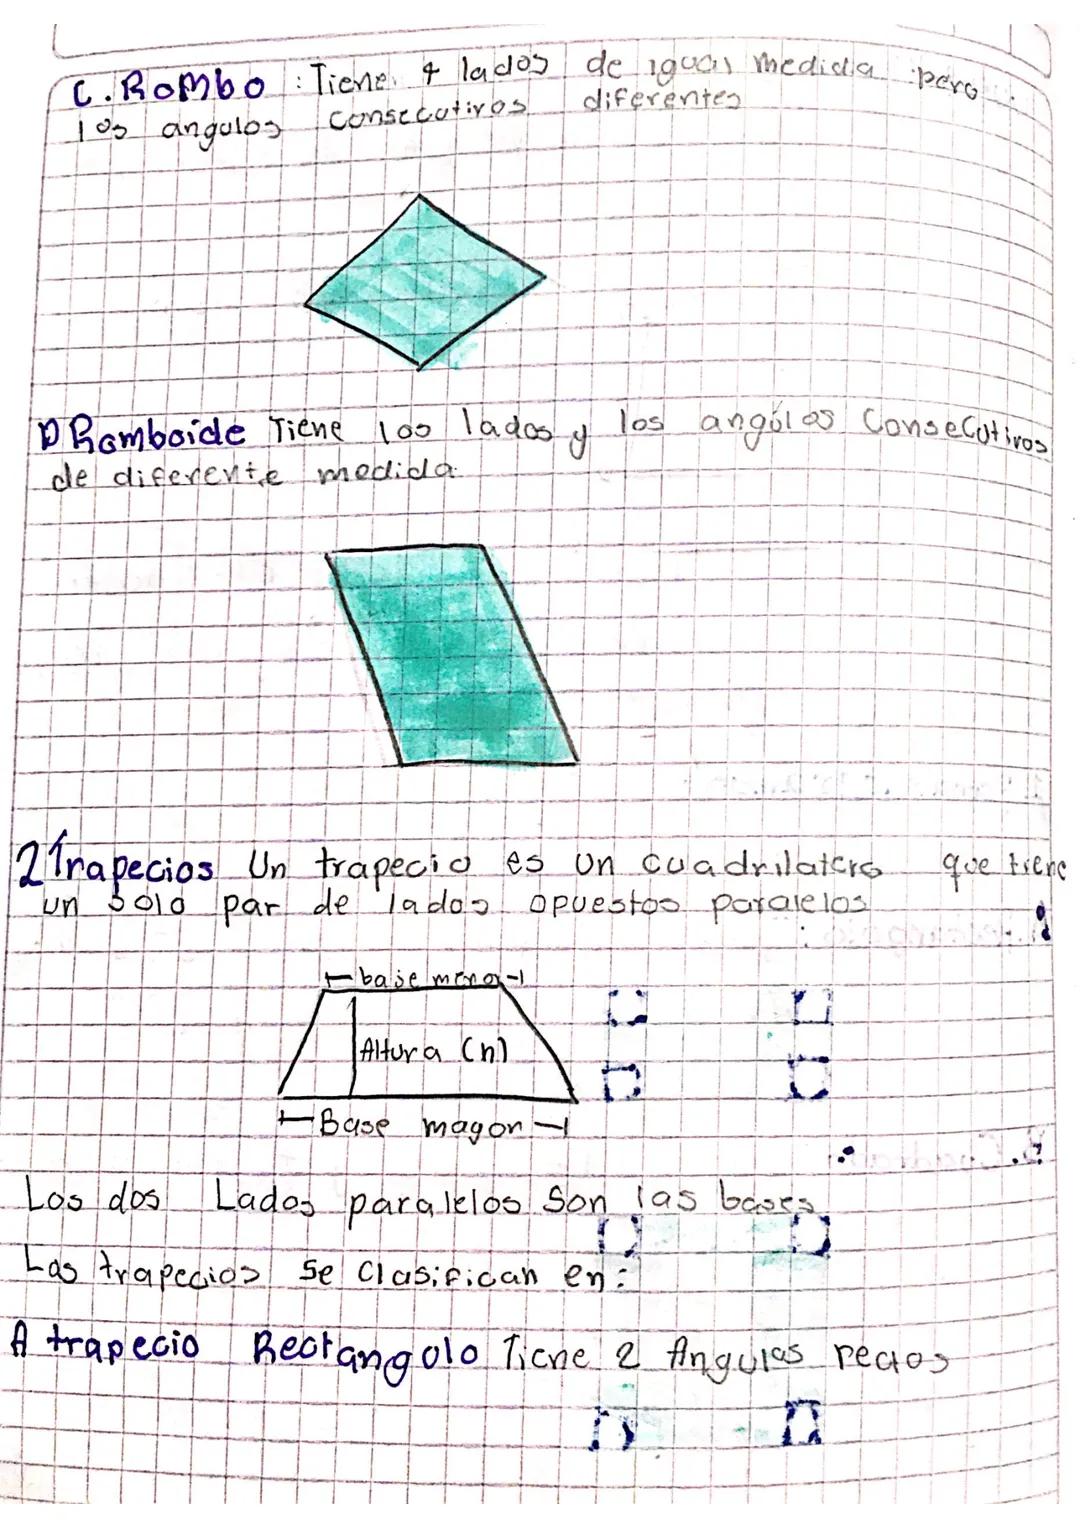 C. Rombo : Tiene 4 lados de igual medida pero
los angulos consecutivos diferentes
D Romboide Tiene los lados y los angulos Consecutivos
de diferente medida
2 Trapecios Un trapecio es un cuadrilatero que tiene
un solo par de lados opuestos paralelos
base menor
Altura (h)
Base magor
Los dos Lados paralelos Son las bases
Los trapecios Se Clasifican en:
A trapecio Rectangolo Tiene 2 Angulos rectos